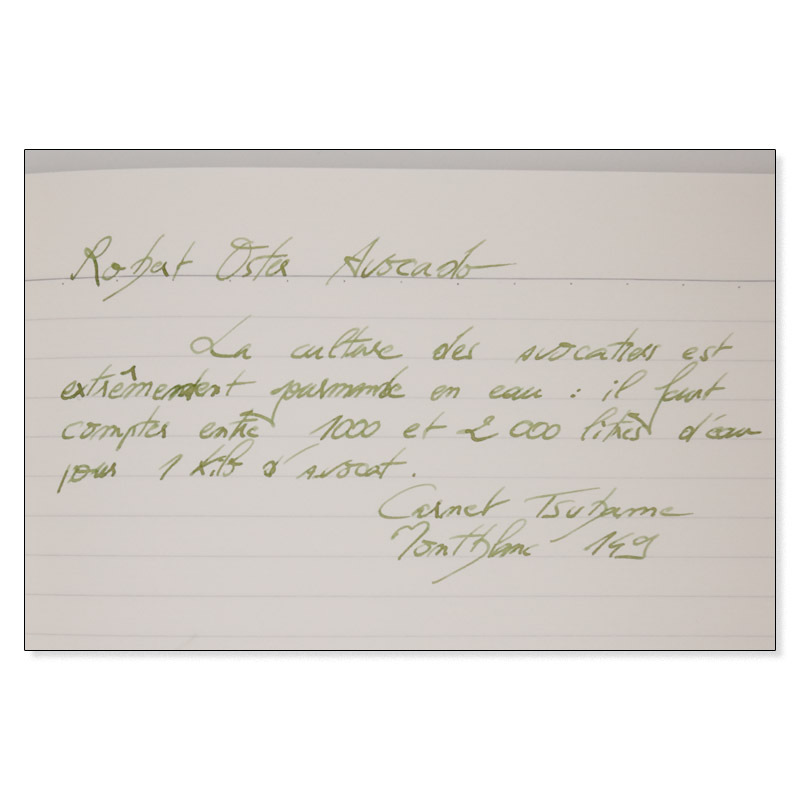 Robert Oster Avocado
La culture des avocatiers est
extrêmement gourmande en eau : il faut
compter entre 1000 et 2 000 litres d'eau
pour 1 kilo d'avocat.
Carnet Tsubame
Montblanc 149